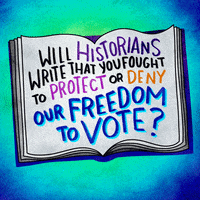 WILL HISTORIANS
WRITE THAT YOU FOUGHT
TO PROTECT OR DENY
OUR FREEDOM
TO VOTE?